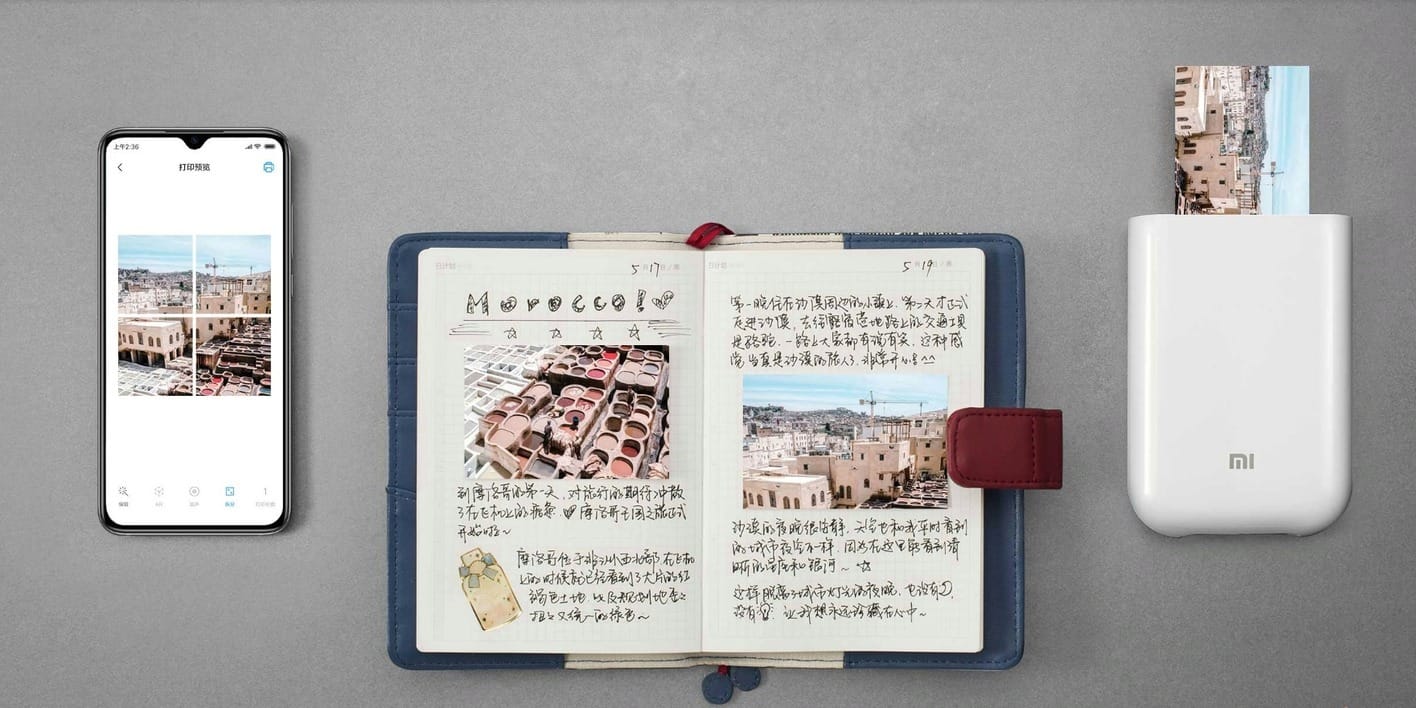 上午2:36
打印预览
编辑
AR
拆分
日计划
5月17日/周
Morocco!
到摩洛哥的第一天，对旅行的期待冲散
了在飞机上的疲惫 摩洛哥王国之旅正式
开始啦～
摩洛哥位于非洲西北部 在飞机
上的时候就已经看到了大片的红
褐色土地 以及规划地
又统一的绿色～
日计划
5月19日/周
第一晚住在沙漠周边的小镇上，第二天才正式
走进沙漠，去往酒店这段路上的交通工具
是骆驼，一路上大家都有说有笑，这种感
觉当真是沙漠的旅人了，非常开心^^
沙漠的夜晚很冷静，天空也和我平时看到
的城市夜空不一样，因为在这里能看到清
晰的星座和银河～☆
这样脱离了城市灯光的夜晚，也没有
没有 让我想永远珍藏在心中～
MI